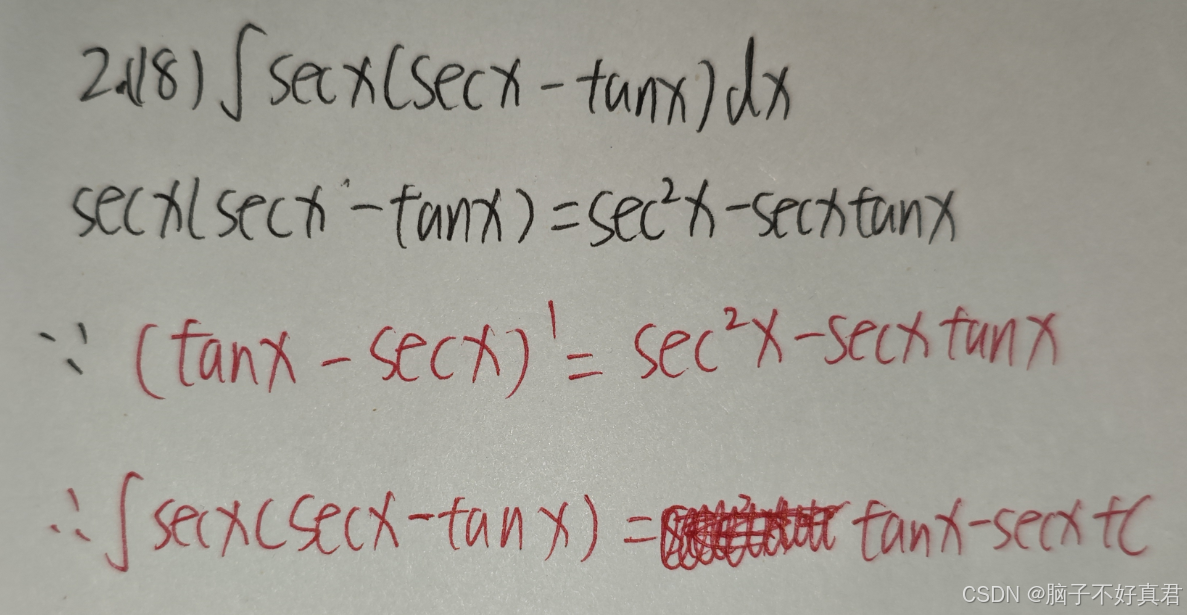 2.(18) ∫secx(secx-tanx)dx
secx(secx-tanx)=sec²x-secxtanx
∵ (tanx-secx)'=sec²x-secxtanx
∴∫secx(secx-tanx)= tanx-secx+C
CSDN @脑子不好真君